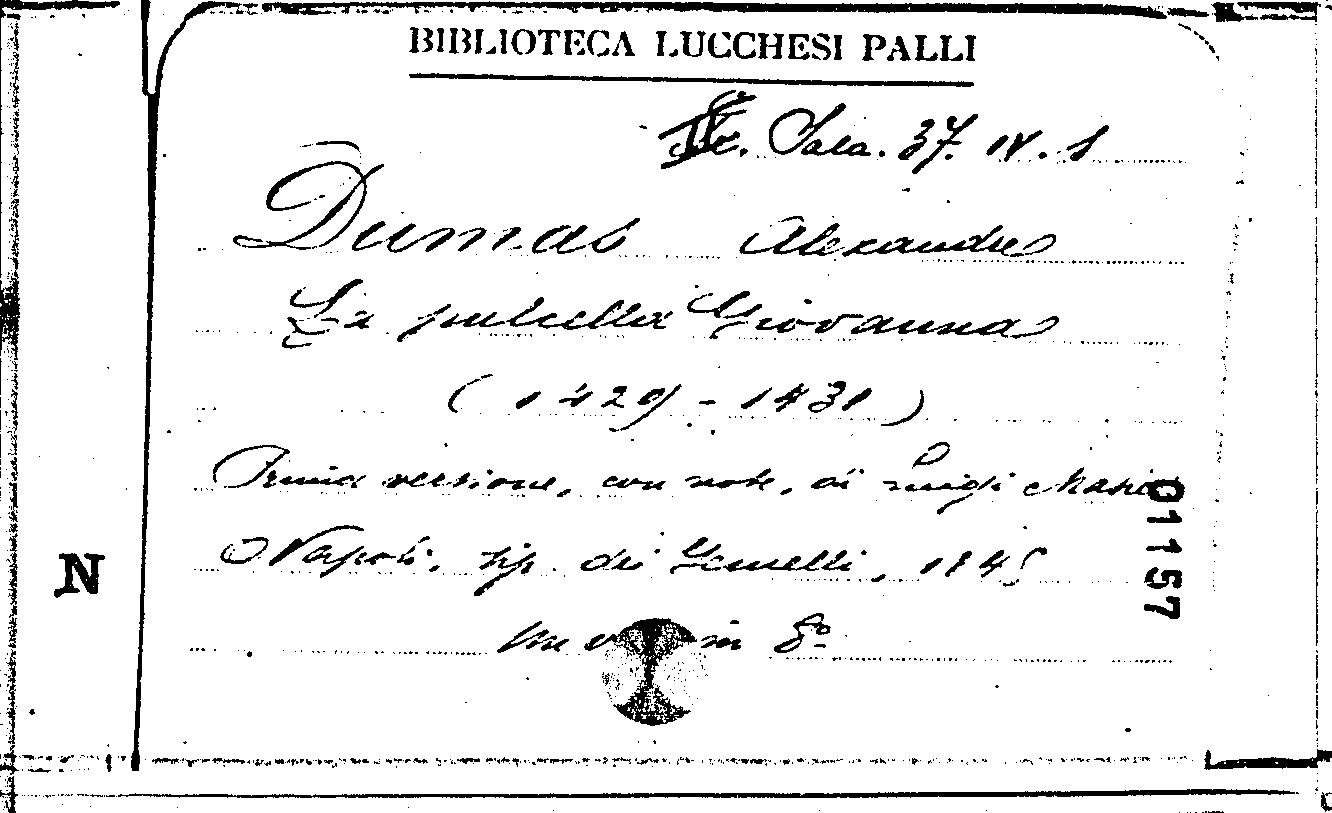 BIBLIOTECA LUCCHESI PALLI
Sala. 37. IV. 8
Dumas Alexandre
La pulcella Giovanna
(1429 - 1431)
Prima versione, con note, di Luigi Masi
Napoli, tip. dei Gemelli, 1845
Un in 8º
N
01157